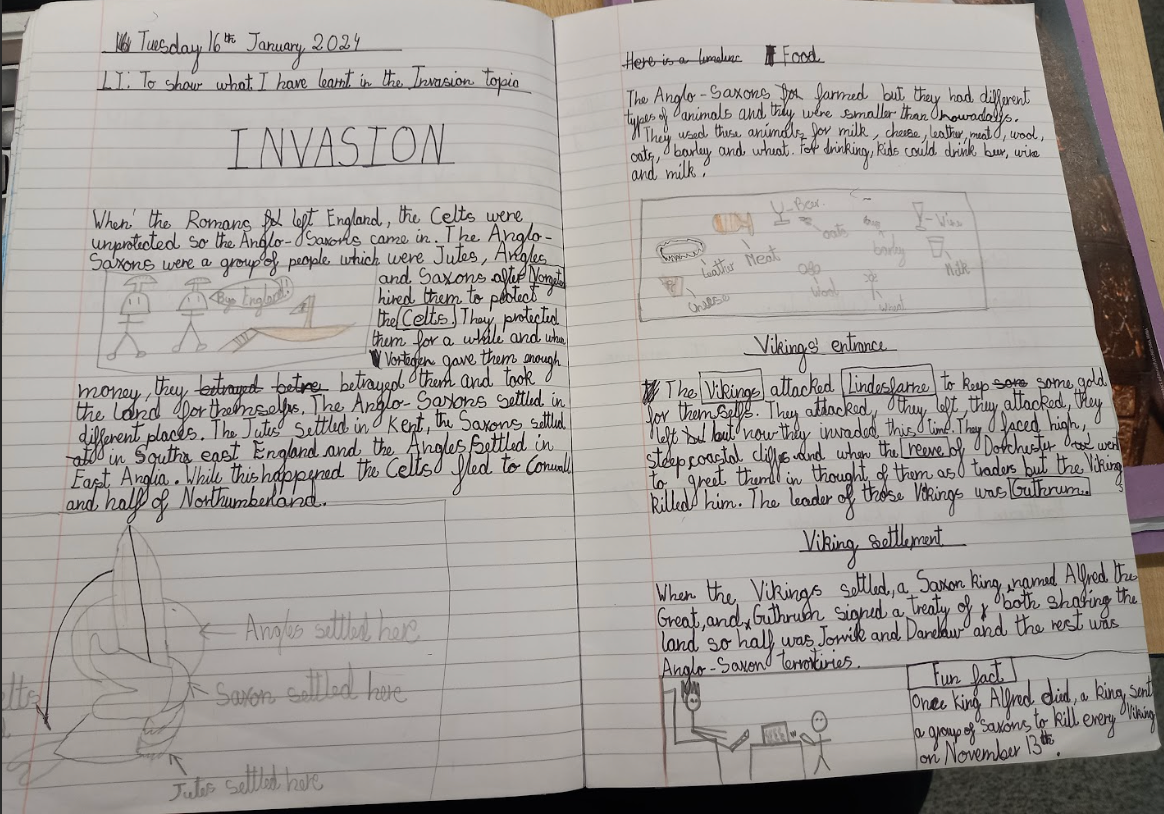 Tuesday 16th January 2024
LI: To show what I have learnt in the Invasion topic
INVASION
When the Romans left England, the Celts were
unprotected so the Anglo-Saxons came in. The Anglo-
Saxons were a group of people which were Jutes, Angles
and Saxons after
hired them to protect
the Celts. They protected
them for a while and when
Vortegen gave them enough
Bye England!
money, they betrayed betre betrayed them and took
the land for themselfs. The Anglo-Saxons settled in
different places. The Jutes settled in Kent, the Saxons settled
in South east England and the Angles settled in
East Anglia. While this happened the Celts fled to Cornwall
and half of Northumberland.
Angles settled here
Saxon settled here
Jutes settled here
Here is a timeline Food
The Anglo-Saxons farmed but they had different
types of animals and they were smaller than nowadays.
They used these animals for milk, cheese, leather, meat, wool,
oats, barley and wheat. For drinking, kids could drink beer, wine
and milk.
oats
barley
Leather
Meat
Milk
Wool
wheat
Cheese
Vikings' entrance
The Vikings attacked Lindesfarne to keep some some gold
for themselfs. They attacked, they left, they attacked, they
left but but now they invaded this time. They faced high,
steep coastal cliffs and when the reeve of Dorchester went
to greet them in thought of them as traders but the Vikings
killed him. The leader of those Vikings was Guthrum.
Viking settlement
When the Vikings settled, a Saxon king, named Alfred the
Great, and Guthrum signed a treaty of both sharing the
land so half was Jorvik and Danelaw and the rest was
Anglo-Saxon
Fun fact
Once king Alfred died, a king sent
a group of saxons to kill every Viking
on November 13th.